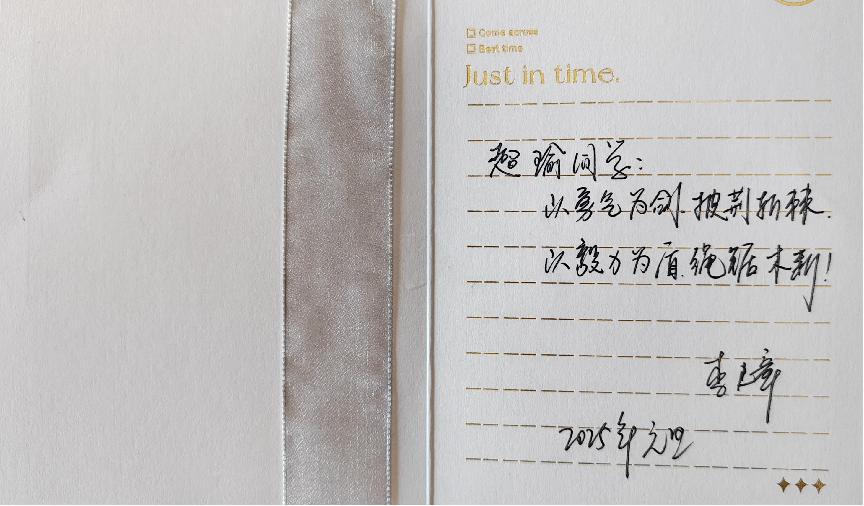 Come across
Best time
Just in time.
超瑜同学：
以勇气为剑.披荆斩棘.
以毅力为盾.绳锯木断！
李
2025年元旦